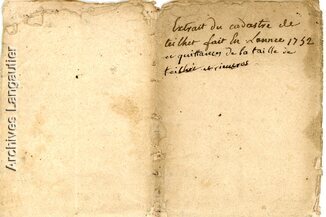 Extrait du cadastre de
teilhet fait En Lannee 1752
et quittances de la taille de
teilhet et
Archives Langautier